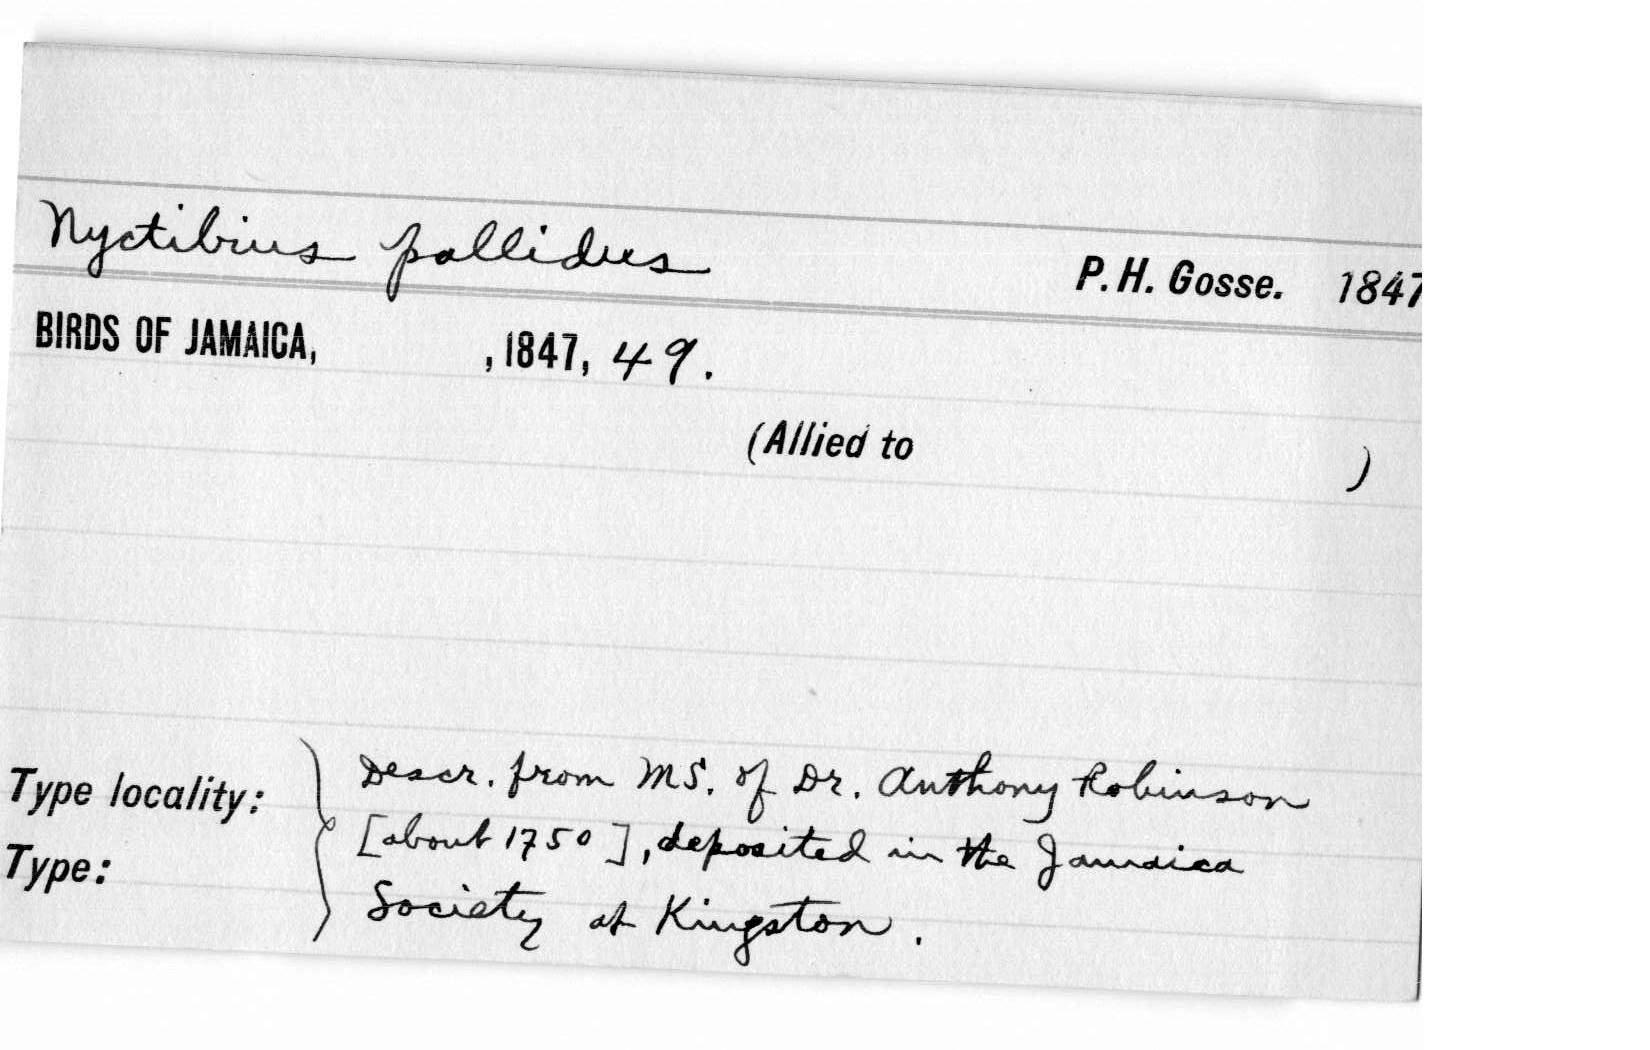 Nyctibius pallidus P. H. Gosse. 1847
BIRDS OF JAMAICA, , 1847, 49.
(Allied to )
Type locality: } Descr. from MS. of Dr. Anthony Robinson
[about 1750], deposited in the Jamaica
Type:
Society at Kingston.